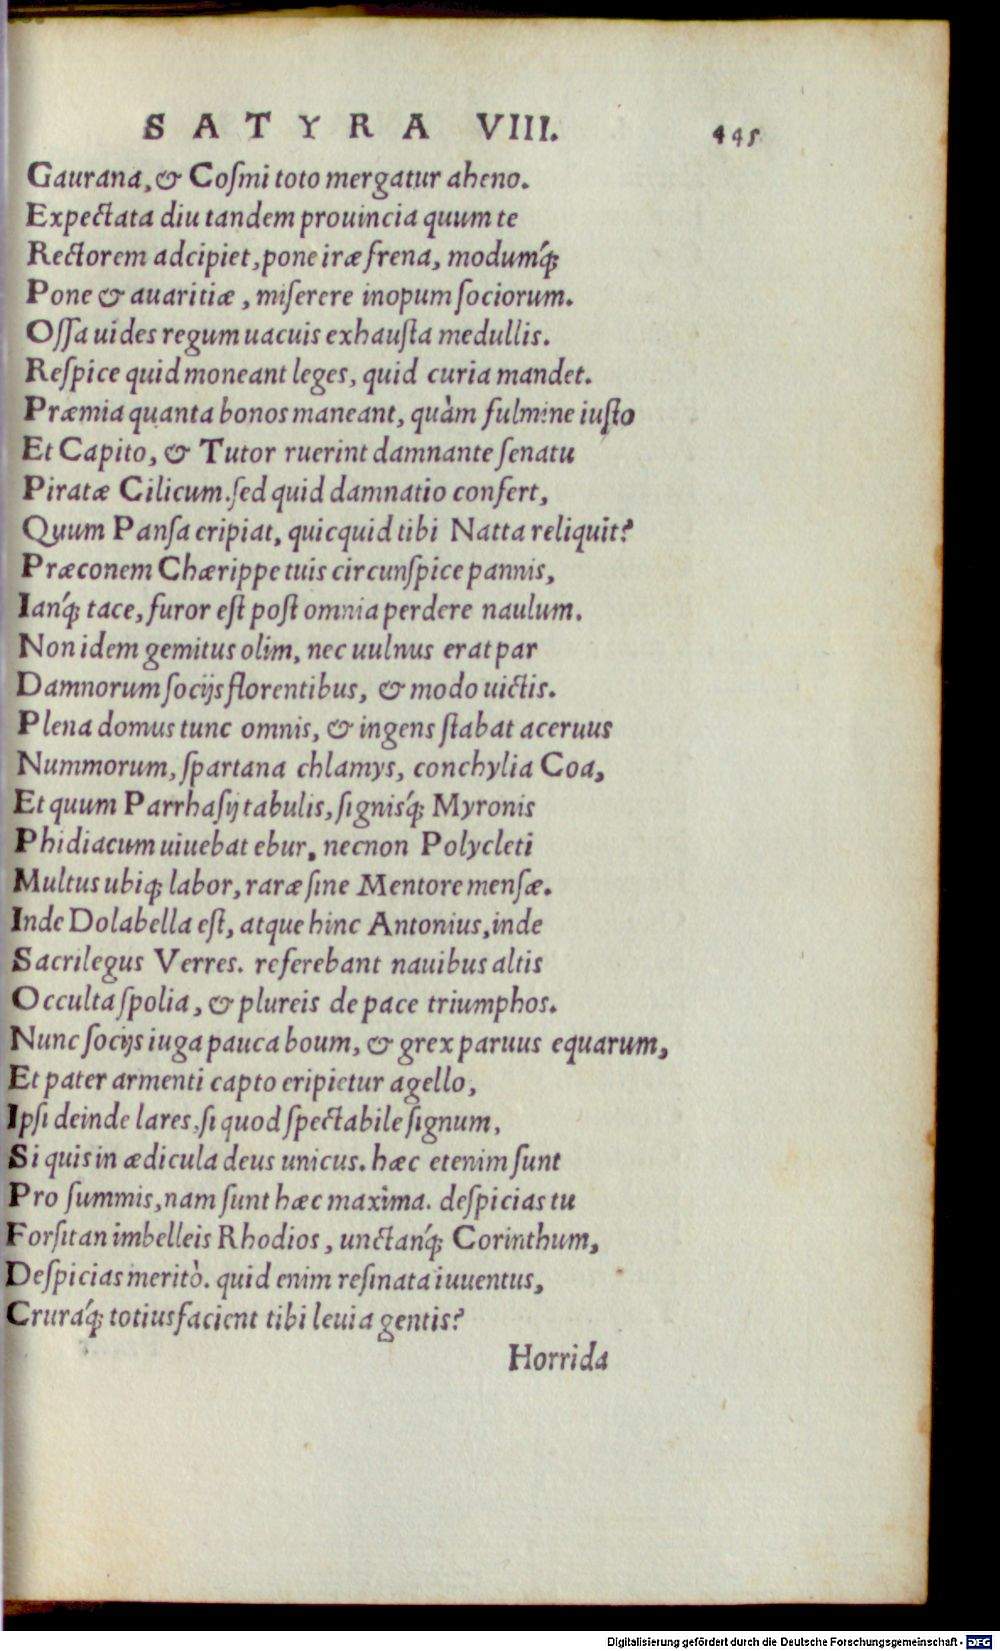 SATYRA VIII. 445
Gaurana, & Cosmi toto mergatur aheno.
Expectata diu tandem prouincia quum te
Rectorem adcipiet, pone iræ frena, modumq́;
Pone & auaritiæ, miserere inopum sociorum.
Ossa uides regum uacuis exhausta medullis.
Respice quid moneant leges, quid curia mandet.
Præmia quanta bonos maneant, quàm fulmine iusto
Et Capito, & Tutor ruerint damnante senatu
Piratæ Cilicum. sed quid damnatio confert,
Quum Pansa eripiat, quicquid tibi Natta reliquit?
Præconem Chærippe tuis circunspice pannis,
Ianq́; tace, furor est post omnia perdere naulum.
Non idem gemitus olim, nec uulnus erat par
Damnorum socijs florentibus, & modo uictis.
Plena domus tunc omnis, & ingens stabat aceruus
Nummorum, spartana chlamys, conchylia Coa,
Et quum Parrhasij tabulis, signisq́; Myronis
Phidiacum uiuebat ebur, necnon Polycleti
Multus ubiq; labor, raræ sine Mentore mensæ.
Inde Dolabella est, atque hinc Antonius, inde
Sacrilegus Verres. referebant nauibus altis
Occulta spolia, & plureis de pace triumphos.
Nunc socijs iuga pauca boum, & grex paruus equarum,
Et pater armenti capto eripietur agello,
Ipsi deinde lares, si quod spectabile signum,
Si quis in ædicula deus unicus. hæc etenim sunt
Pro summis, nam sunt hæc maxima. despicias tu
Forsitan imbelleis Rhodios, unctanq́; Corinthum,
Despicias meritò. quid enim resinata iuuentus,
Cruraq́; totius facient tibi leuia gentis?
Horrida
Digitalisierung gefördert durch die Deutsche Forschungsgemeinschaft - DFG